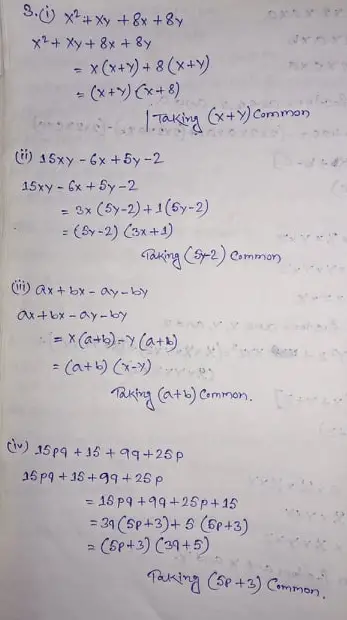 3.(i) x² + xy + 8x + 8y
x² + xy + 8x + 8y
= x(x+y) + 8(x+y)
= (x+y) (x+8)
Taking (x+y) Common
(ii) 15xy - 6x + 5y - 2
15xy - 6x + 5y - 2
= 3x (5y-2) + 1(5y-2)
= (5y-2) (3x+1)
Taking (5y-2) Common
(iii) ax + bx - ay - by
ax + bx - ay - by
= x(a+b) - y(a+b)
= (a+b) (x-y)
Taking (a+b) Common.
(iv) 15pq + 15 + 9q + 25p
15pq + 15 + 9q + 25p
= 15pq + 9q + 25p + 15
= 3q(5p+3) + 5 (5p+3)
= (5p+3) (3q+5)
Taking (5p+3) Common.